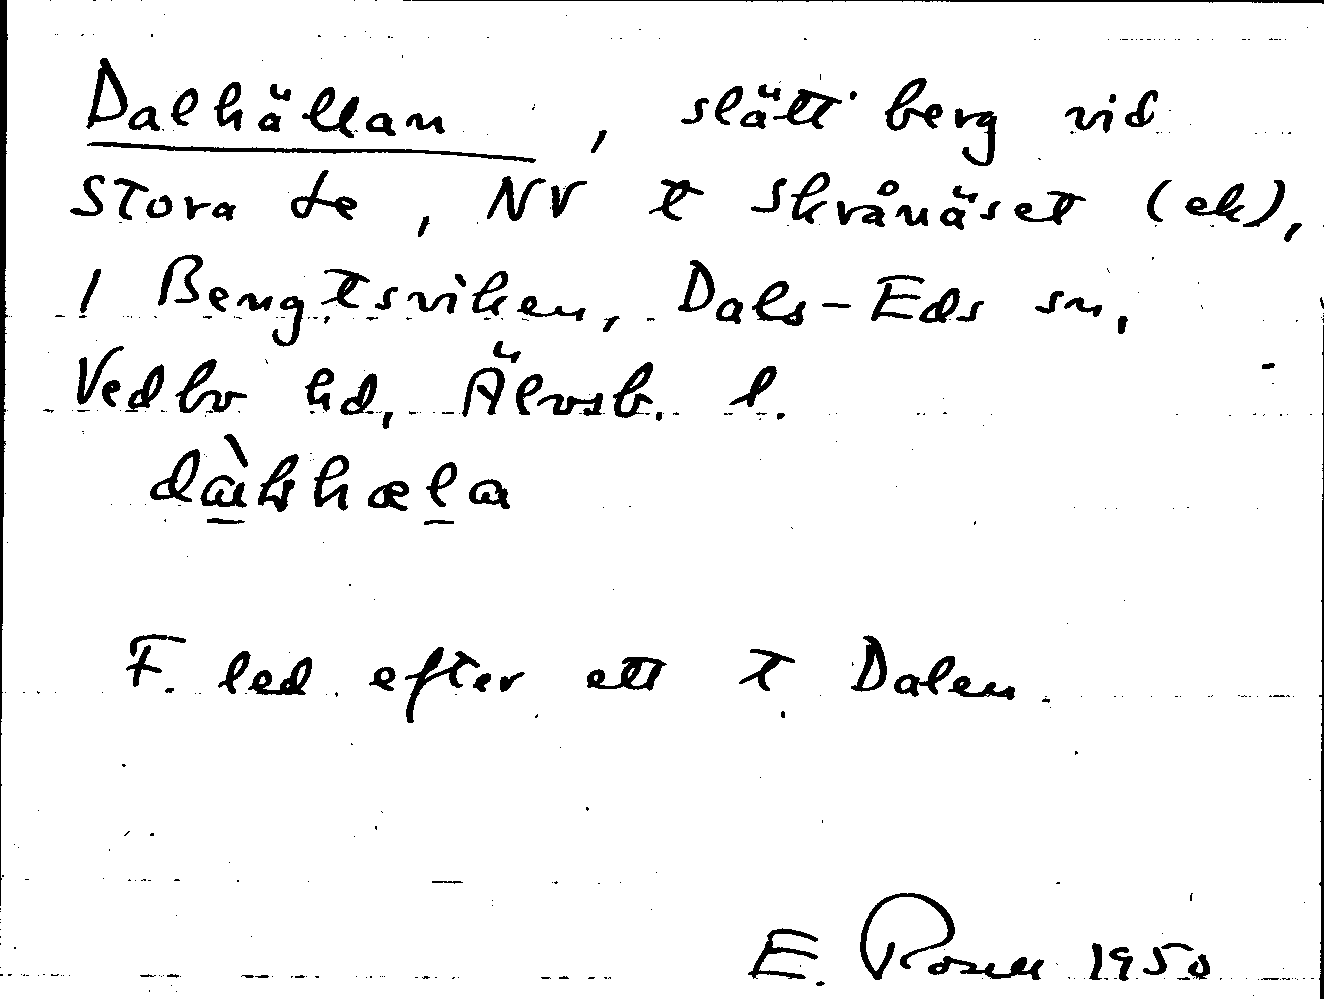 Dalhällan, slätt berg vid
Stora Le, NV t Skrånäset (ek),
1 Bengtsviken, Dals-Eds sn,
Vedbo hd, Älvsb. l.
hæla
F. led efter ett t Dalen
E. Rosell 1950